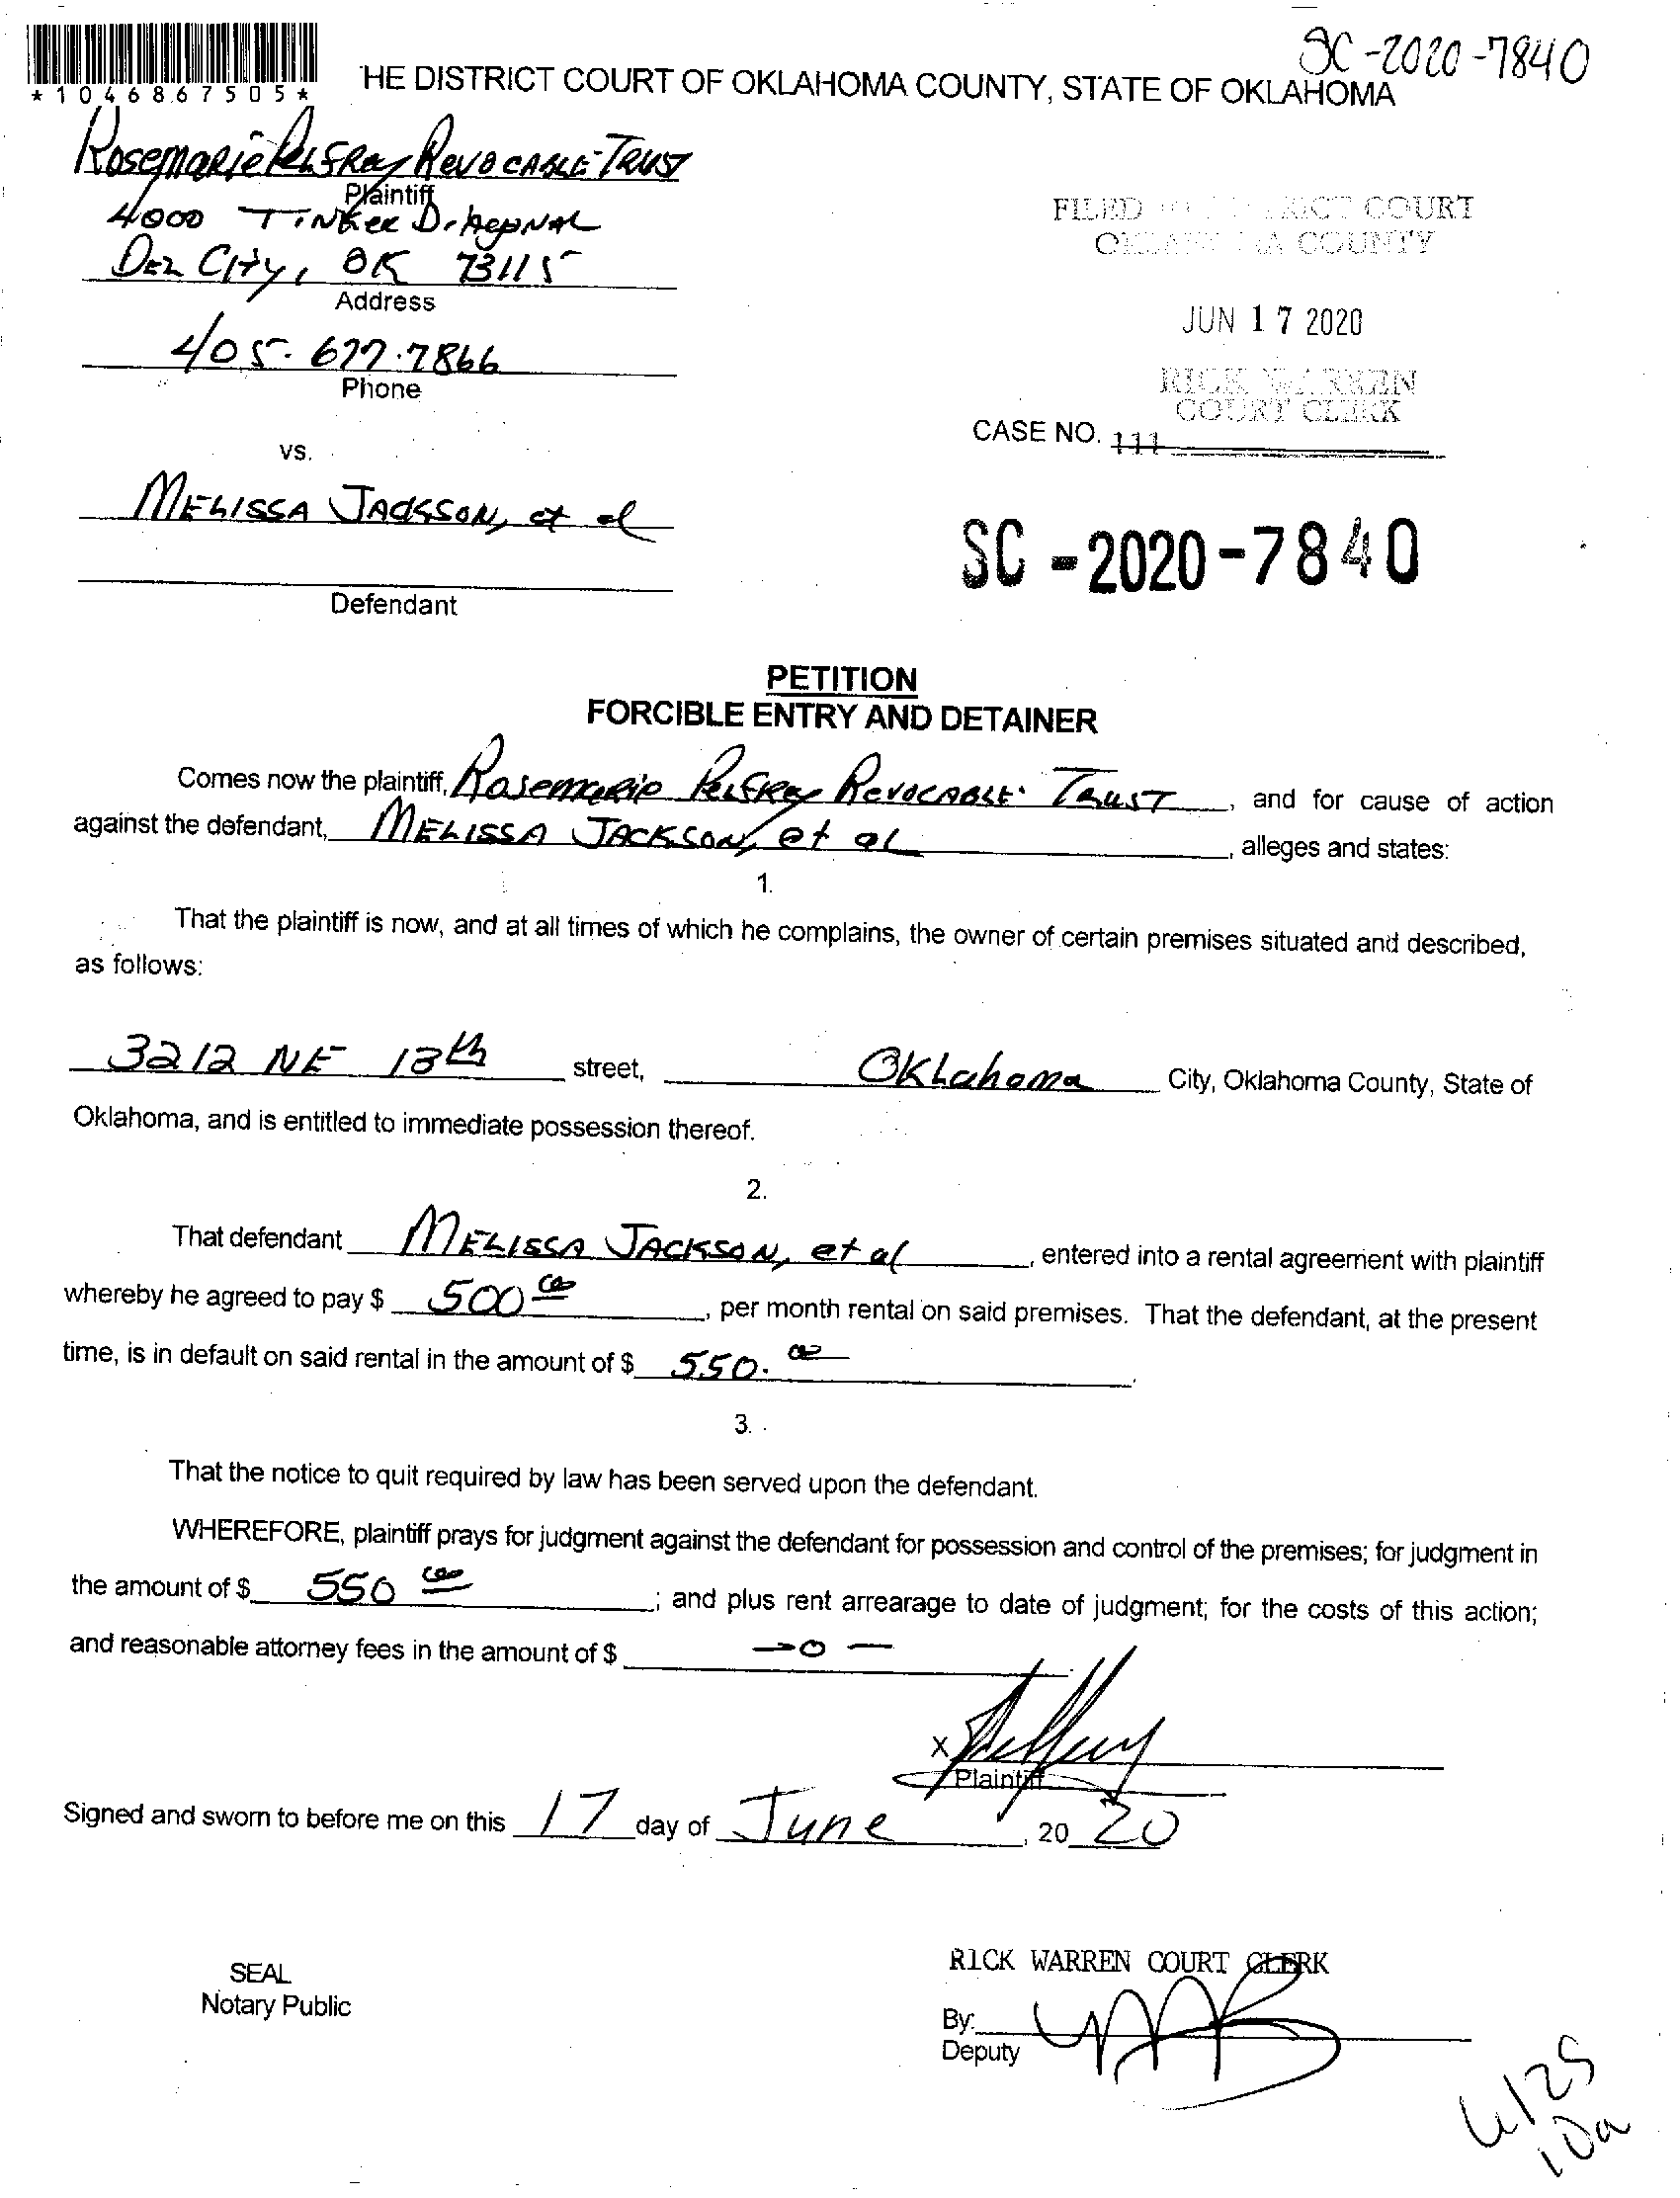 SC-2020-7840
*1046867505*
HE DISTRICT COURT OF OKLAHOMA COUNTY, STATE OF OKLAHOMA
Rosemarie Pelfrey Revocable Trust
Plaintiff
4000 Tinker Diagonal
Del City, OK 73115
Address
405-677-7866
Phone
FILED COURT
COUNTY
JUN 17 2020
RICK WARREN
COURT CLERK
CASE NO. 111
vs.
MELISSA JACKSON, et al
Defendant
SC-2020-7840
PETITION
FORCIBLE ENTRY AND DETAINER
Comes now the plaintiff, Rosemarie Pelfrey Revocable Trust, and for cause of action
against the defendant, MELISSA JACKSON, et al, alleges and states:
1.
That the plaintiff is now, and at all times of which he complains, the owner of certain premises situated and described,
as follows:
3212 NE 13th street, Oklahoma City, Oklahoma County, State of
Oklahoma, and is entitled to immediate possession thereof.
2.
That defendant MELISSA JACKSON, et al, entered into a rental agreement with plaintiff
whereby he agreed to pay $ 500 00, per month rental on said premises. That the defendant, at the present
time, is in default on said rental in the amount of $ 550. 00.
3.
That the notice to quit required by law has been served upon the defendant.
WHEREFORE, plaintiff prays for judgment against the defendant for possession and control of the premises; for judgment in
the amount of $ 550 00; and plus rent arrearage to date of judgment; for the costs of this action;
and reasonable attorney fees in the amount of $ -0-
X
Plaintiff
Signed and sworn to before me on this 17 day of June, 2020
SEAL
Notary Public
RICK WARREN COURT CLERK
By:
Deputy
6/25
10a